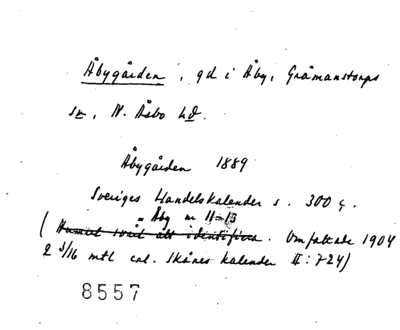 Åbygården, gd i Åby, Gråmanstorps
sn, N. Åsbo hd.
Åbygården 1889
Sveriges Handelskalender s. 300 q.
= Åby nr 11-13
(Numret svårt att identifiera. Omfattade 1904
2 3/16 mtl enl. Skånes kalender II:724)
8557